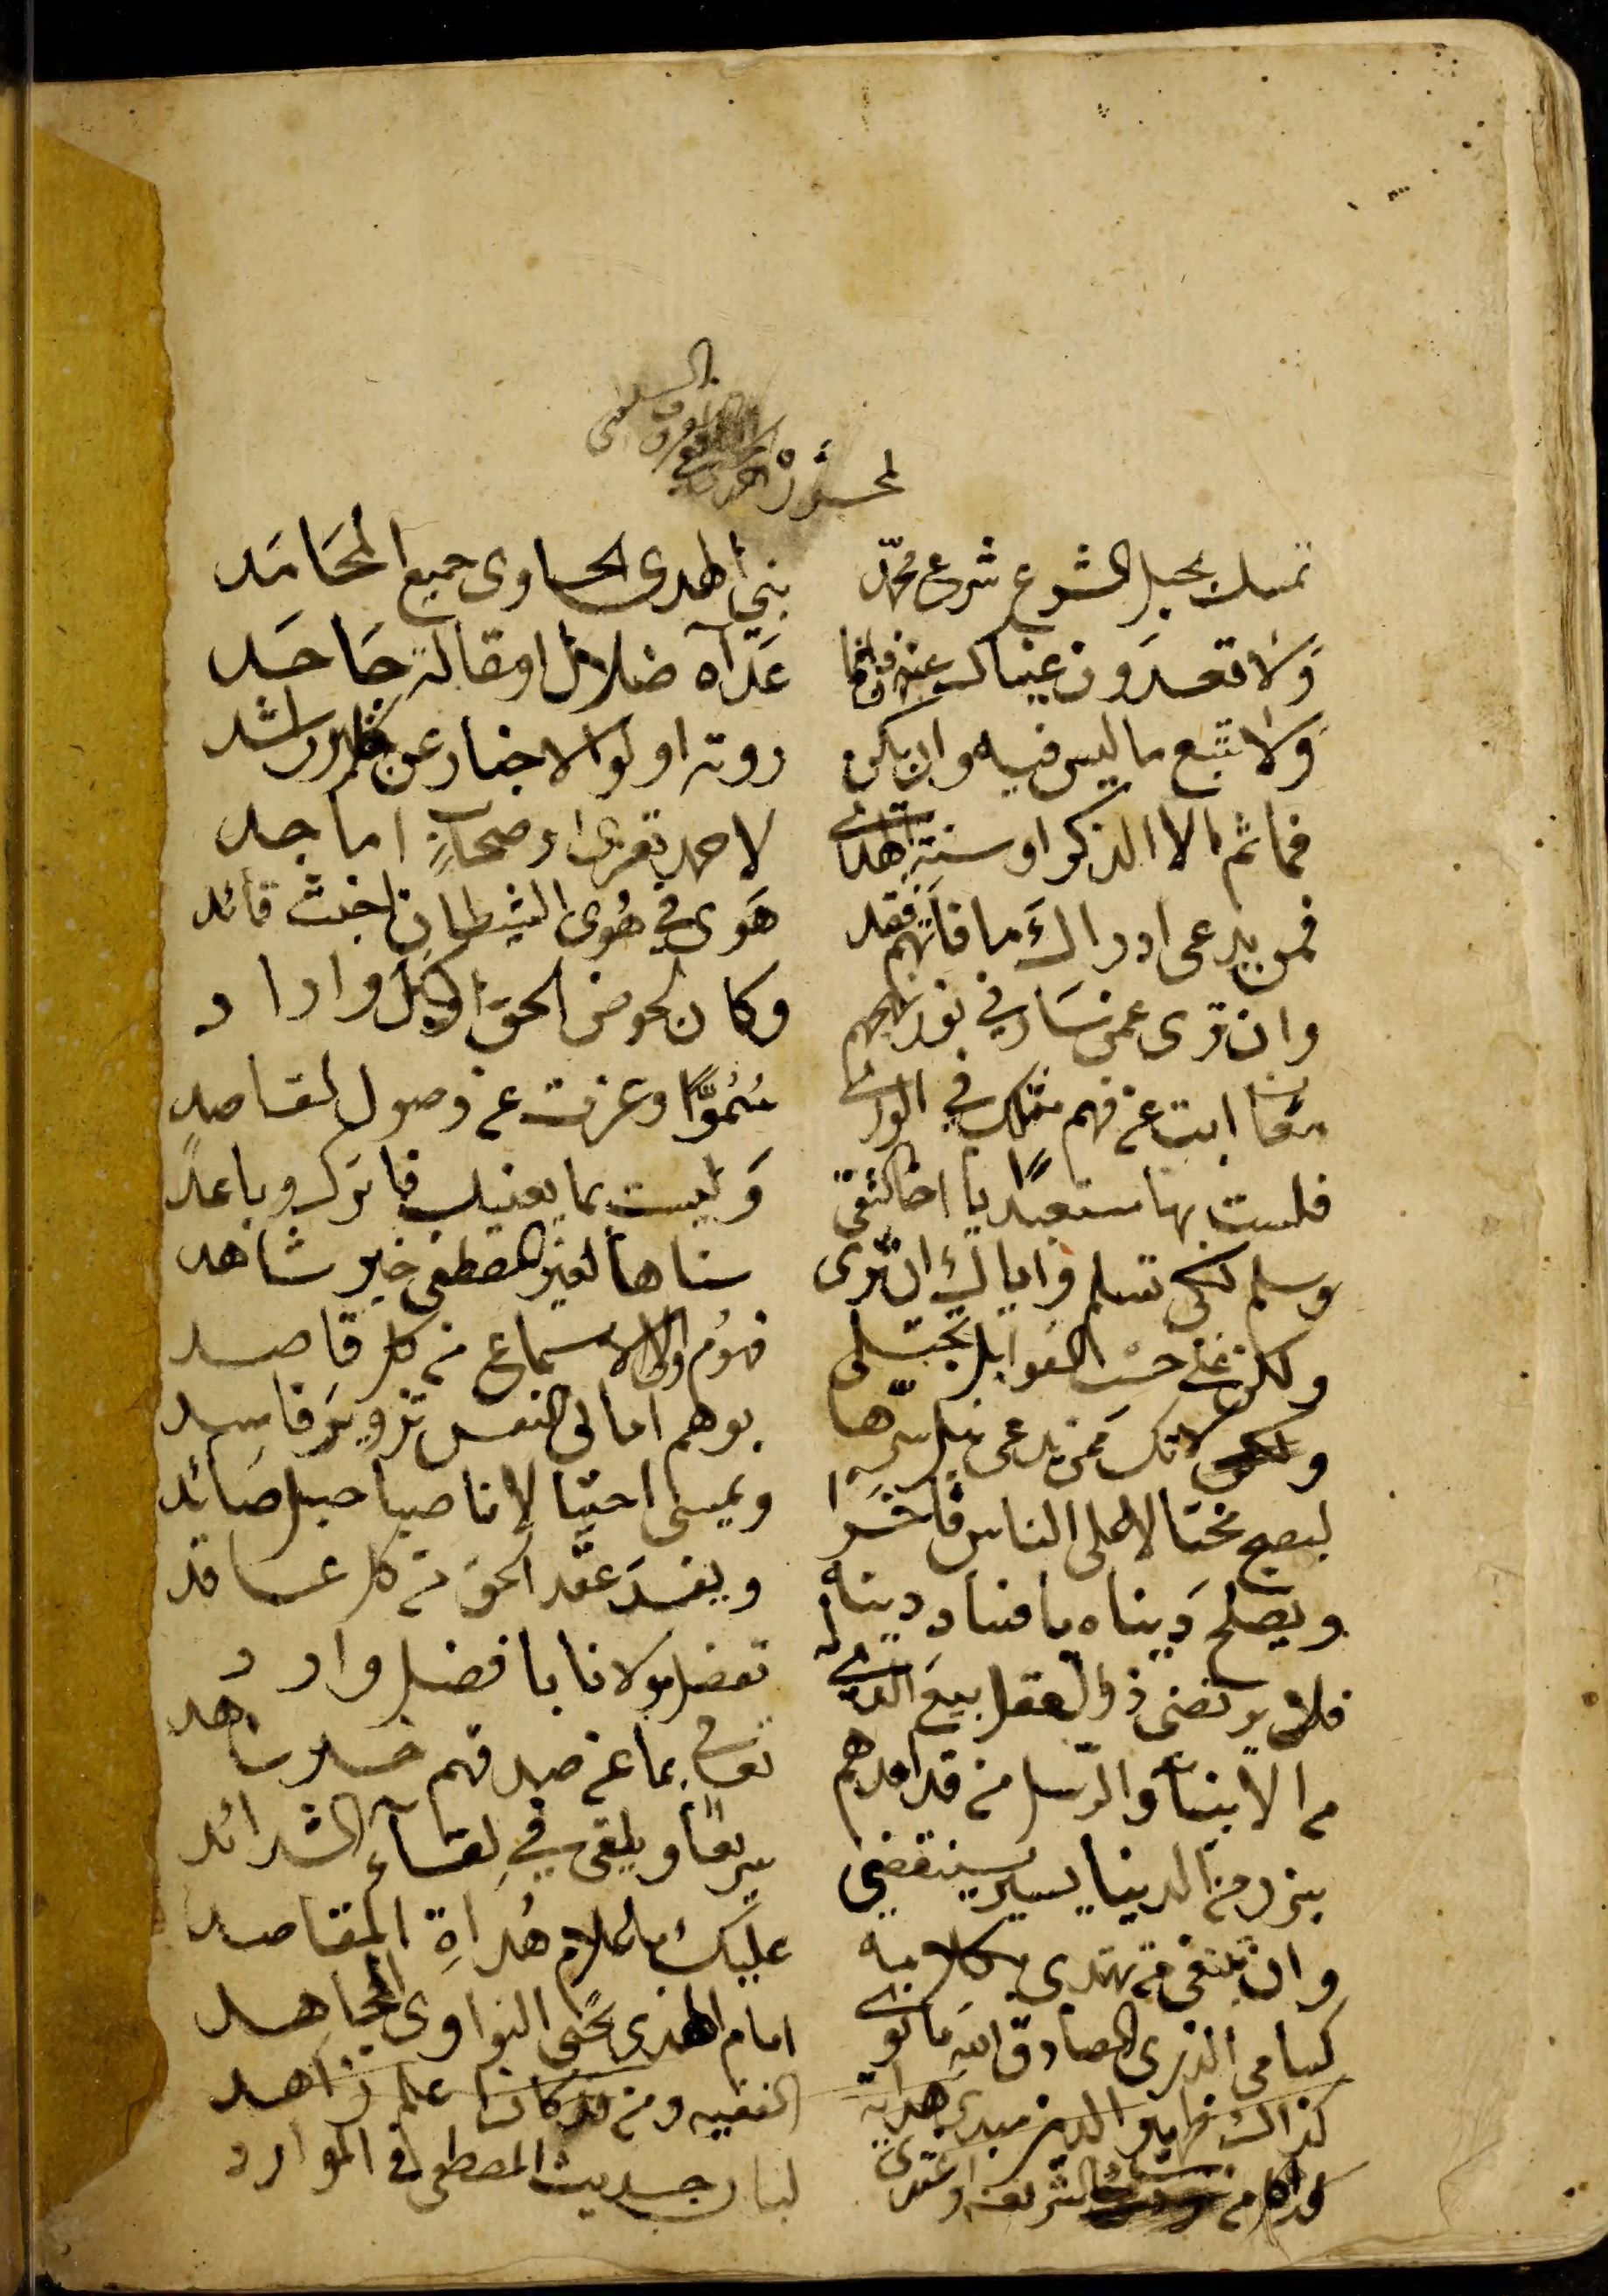 تمسك بحبل الشرع شرع محمّد نبي الهدى الحاوى جميع المحَامَد
وَلا تعدَون عيناك عنه فانما عَدَآه ضلال او مقالة جَاحَد
وَلا تتبع ما ليس فيه وان يكن روته اولوا الاخبار عن راشد
فما ثم الا الذكر او سنة الهدى لاحمد تعزى او صحاب اماجد
فمن يدعى ادراكَ ما فاتهم فقد هَوى في هُوى الشيطان اخبث قائد
وان ترى عمن سَار في نور نهجهم وكان لحوض الحق اول وارد
ابت عن فهم مثلك في الورى سُمُوًّا وعزت عن وصول لقاصد
فلست بها مستعبدًا يا اخا التقى وَليست بما يعنيك فاترك وباعد
وسلم لكى تسلم واياك ان ترى سناها لغير المصطفى خير شاهد
ولكن على حسب القوابل تجتلى فهوم اولى الاسماع من كل قاصد
ولا تك ممن يدعى نيل سرّها بوهم امالى النفس تزويرَ فاسِد
ليصبح مختالا على الناس فاخرا ويمسى احتيالا ناصبا حبل صَائد
ويصلح دنياه بافساد دينه ويفسدَ عقد الحق من كل عاقد
فلا يرتضى ذو العقل بيع تفضل مولانا بافضل وارد
من الانبيآء والرسل من قد امدهم تعالى بما عن صيد فهم
بنزر من الدنيا يسير سينقضى سريعًا ويلقى في لقآء الشدائد
وان تبتغى من تهتدى بكلامه عليك باعلام هُداةِ المقاصد
كسامى الذرى الصادق الله ما نوى امام الهدى يحيى النواوى المجاهد
كذاك الدين مبدى هداية الفقيه ومن قد كان اعلم زاهد
الشريعة واغتدى لبان حديث المصطفى في الموارد